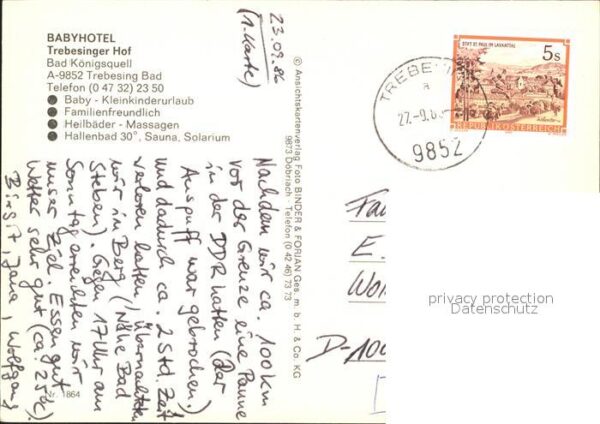 BABYHOTEL
Trebesinger Hof
Bad Königsquell
A-9852 Trebesing Bad
Telefon (0 47 32) 23 50
● Baby - Kleinkinderurlaub
● Familienfreundlich
● Heilbäder - Massagen
● Hallenbad 30°, Sauna, Solarium
23.09.86
(1. Karte)
Nachdem wir ca. 100 km
vor der Grenze eine Panne
in der DDR hatten (der
Auspuff war gebrochen)
und dadurch ca. 2 Std. Zeit
verloren hatten, übernachteten
wir in Berg (Nähe Bad
Steben). Gegen 17 Uhr am
Sonntag erreichten wir
unser Ziel. Essen gut
Wetter sehr gut (ca. 25°C).
Birgit, Jana, Wolfgang
Nr. 1864
© Ansichtskartenverlag Foto BINDER & FORJAN Ges. m. b. H. & Co. KG
9873 Döbriach - Telefon (0 42 46) 73 73
STIFT ST. PAUL IM LAVANTTAL
5s
REPUBLIK ÖSTERREICH
TREBE
a
27.-9.8
9852
Fa
E.
Wo
D-100
privacy protection
Datenschutz